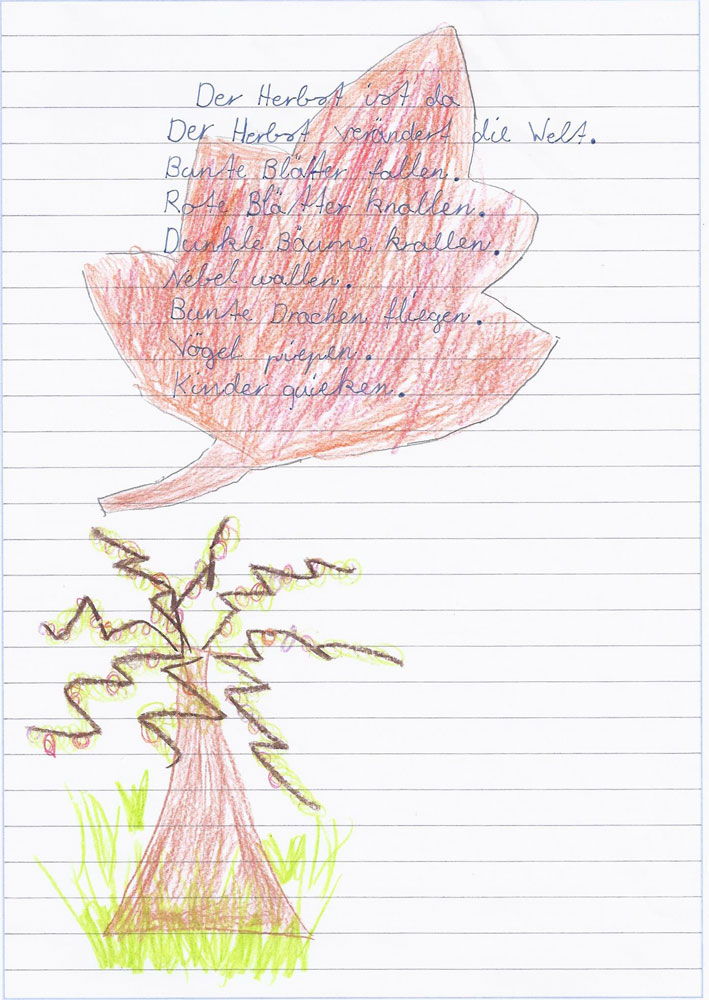 Der Herbst ist da
Der Herbst verändert die Welt.
Bunte Blätter fallen.
Rote Blätter knallen.
Dunkle Bäume krallen.
Nebel wallen.
Bunte Drachen fliegen.
Vögel piepen.
Kinder quieken.